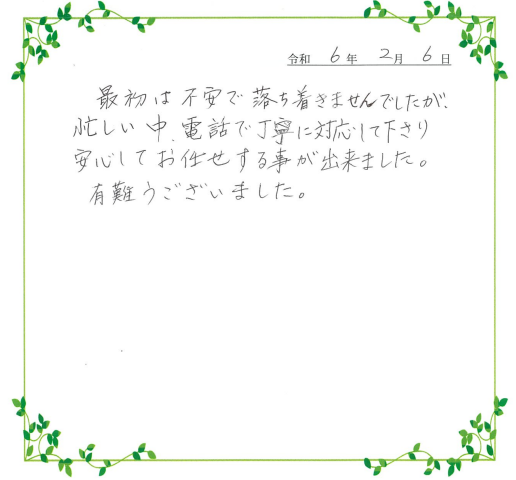 令和 6年 2月 6日
最初は不安で落ち着きませんでしたが、
忙しい中、電話で丁寧に対応して下さり
安心してお任せする事が出来ました。
有難うございました。